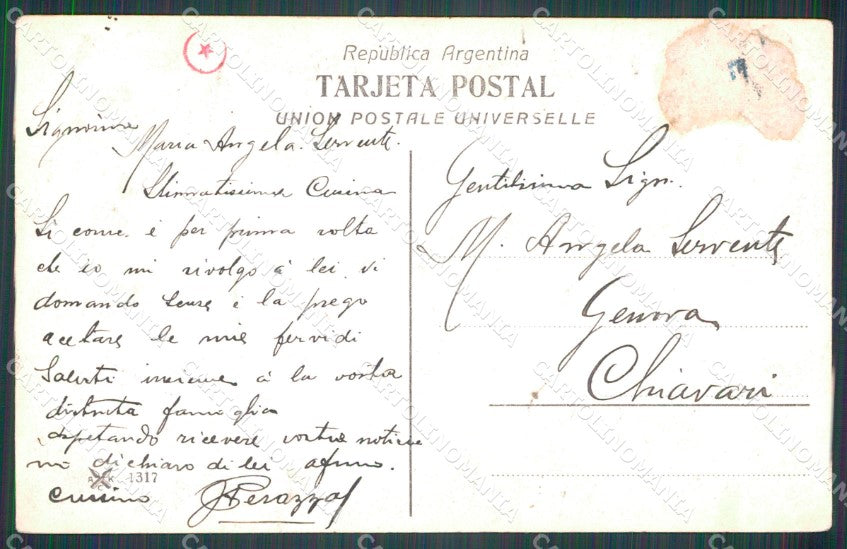 República Argentina
TARJETA POSTAL
UNION POSTALE UNIVERSELLE
Signorina
Maria Angela Servente.
Stimatissima Cucina
Si come é per prima volta
che io mi rivolgo á lei vi
domando scusa é la prego
acetare le mie fervidi
Saluti insieme á la vostra
distinta famiglia
aspetando ricevere vostre noticie
mi dichiaro di lei afmo.
cucino Perazzo
1317
Gentilisima Sign.
M. Angela Servente
Genova
Chiavari
CARTOLINOMANIA